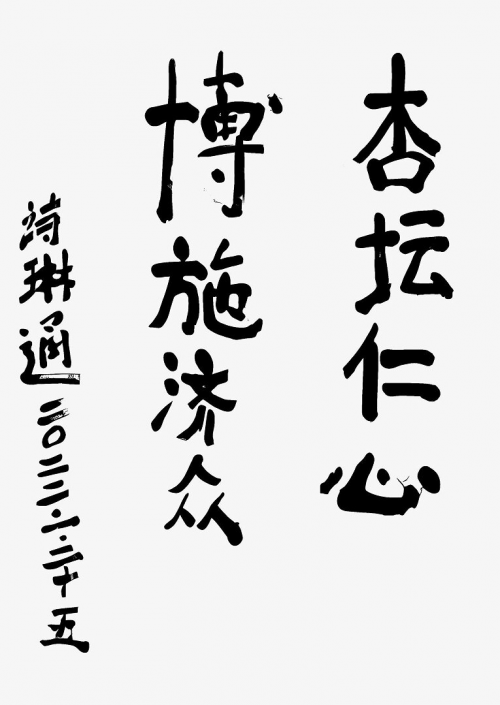 杏坛仁心
博施济众
诗琳通 二〇二三·六·二十五